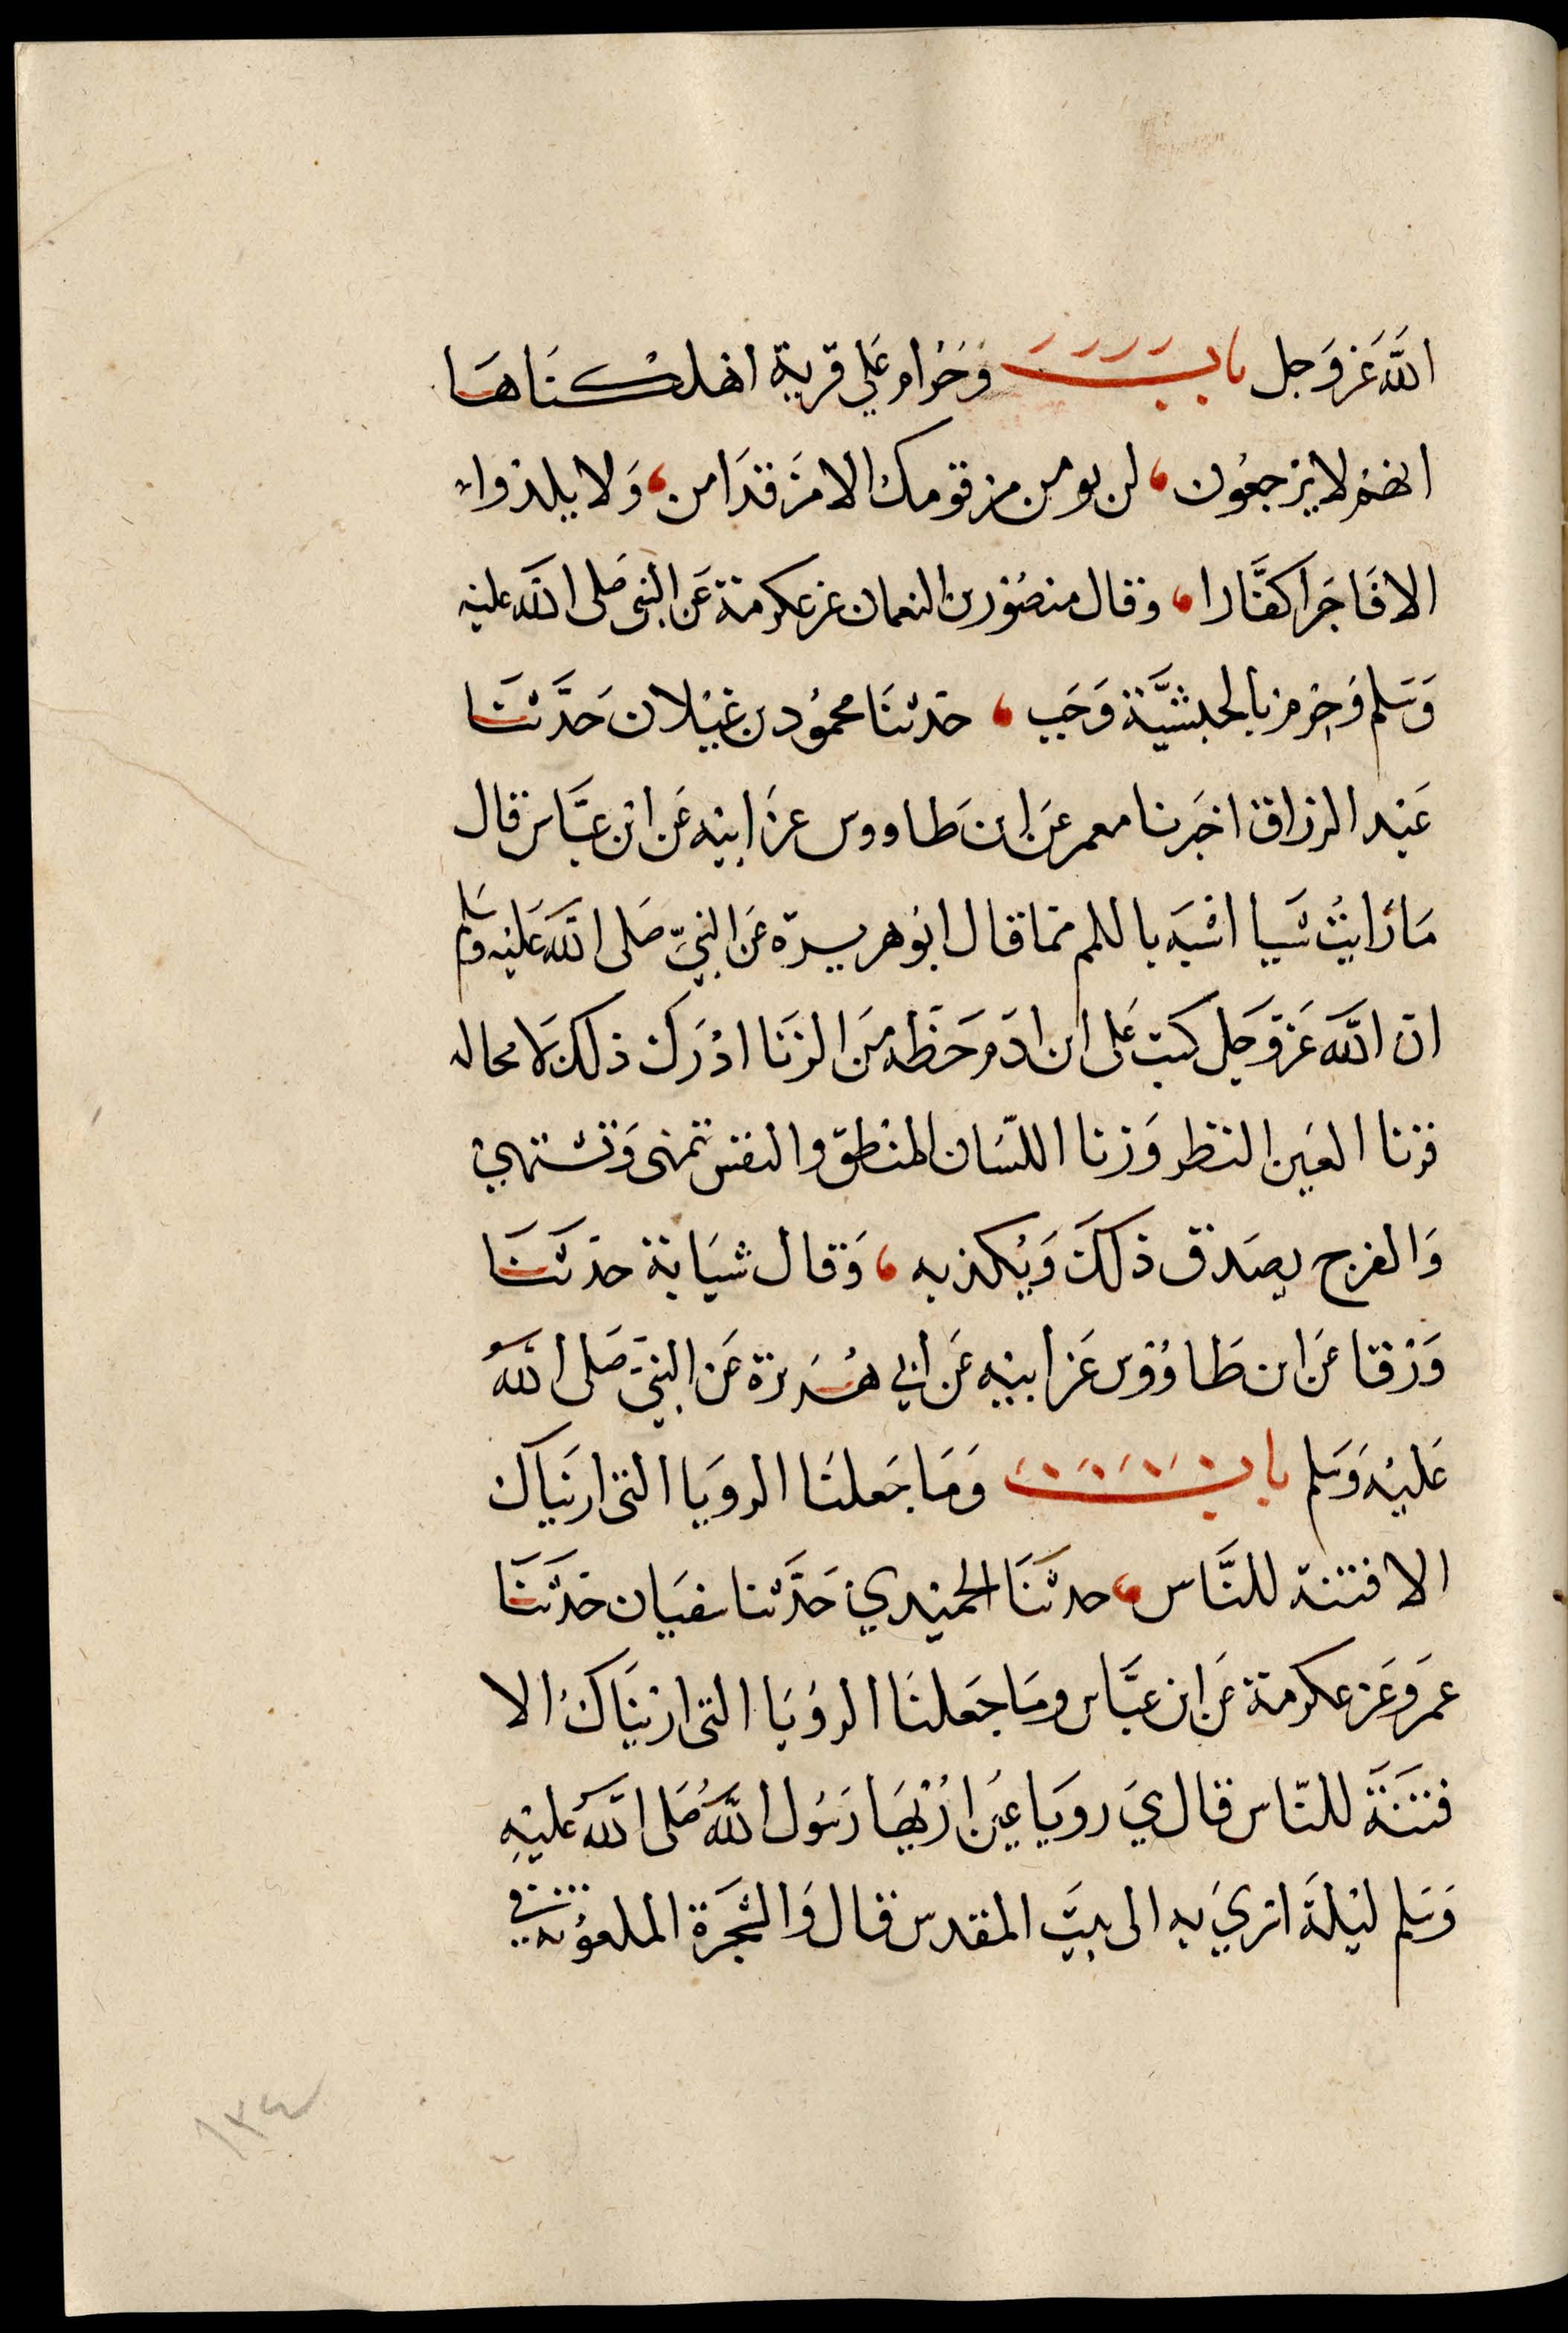 الله عَز وَجل باب وَحَرَام علي قرية اهلكنَاهَا
انهم لا يرجعُون، لن يومن من قومك الا من قدَ امن، وَلا يلدوا
الا فَاجرَا كفَّارا، وقال منصُور بن النعمان عن عكرمة عَن النبي صَلى الله عليه
وَسَلم وَحِرم بالحبشيَّة وَجَب، حَدثنَا محمُود بن غيْلان حَدَّثنَا
عَبْد الرزاق اخبَرنا معمر عَن ابن طَاووس عن ابيْه عَن ابن عبَّاس قال
مَا رَايتُ شَيا اشْبَه باللمم ممَا قال ابُو هريرة عَن النبيّ صَلى الله عَليْه وسَلم
ان الله عَز وَجَل كتب عَلى ابن ادَم حَظه مِنَ الزنَا ادْرَك ذلك لَا محاله
فزنا العَين النظر وَزنا اللسَان المنْطق والنفس تمنى وَتشتهي
وَالفرج يصَدق ذلكَ وَيُكذبه، وَقال شبَابة حدثنَا
وَرْقا عَن ابن طَاوُوس عَن ابيْه عَن ابي هُرَيرة عَن النبيّ صَلى الله
عَليْه وَسَلم باب وَمَا جَعلنَا الرويَا التي اريَناك
الا فتنة للنَّاس، حدثنَا الحميْدي حَدَّثنا سفيَان حَدثنَا
عمَرو عَن عكرمة عَن ابن عبَّاس ومَا جَعَلنَا الروُيَا التي اريْنَاكَ الا
فتنَةَ للنّاس قال هيَ رويَا عيْن اُرْيهَا رَسُول الله صَلى الله عليْهِ
وَسَلم ليْلةَ اسْريَ به الى بيَت المقدس قال وَالشجَرَة الملعوُنة في
١٣٤